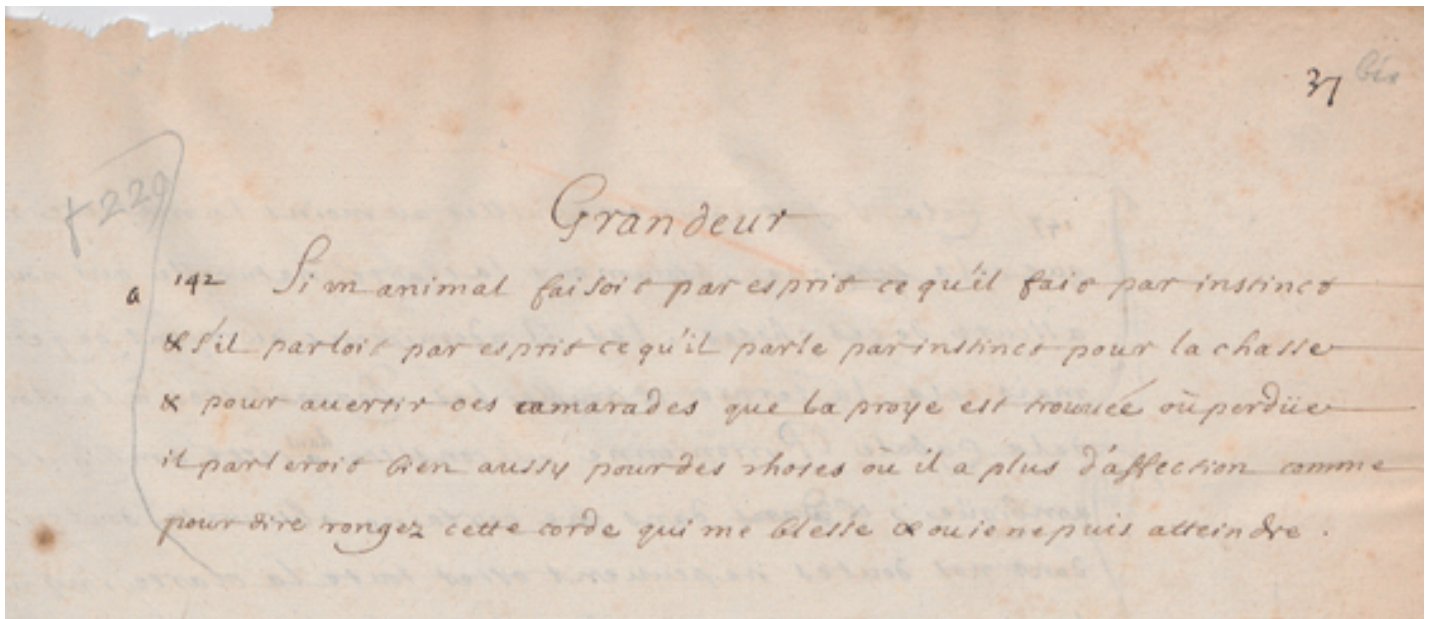 37 bis
f. 229
Grandeur
a 142 Si un animal faisoit par esprit ce qu'il fait par instinct
& s'il parloit par esprit ce qu'il parle par instinct pour la chasse
& pour auertir ses camarades que la proye est trouuée où perdüe
il parleroit bien aussy pour des choses ou il a plus d'affection comme
pour dire rongez cette corde qui me blesse & ou ie ne puis atteindre.